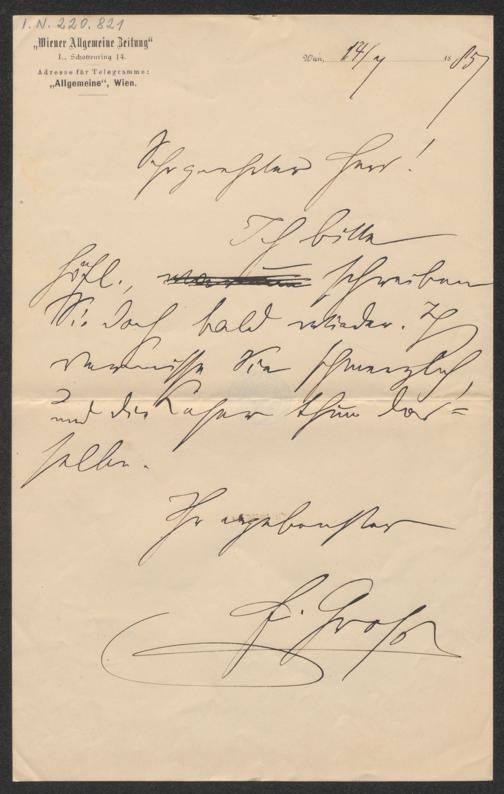 I. N. 220.821
„Wiener Allgemeine Zeitung“
I., Schottenring 14.
Adresse für Telegramme:
„Allgemeine“, Wien.
Wien, 14/7 1885
Sehr geehrter Herr!
Ich bitte
höfl., schreiben
Sie doch bald wieder. Ich
vermisse Sie schmerzlich,
und die Leser thun das=
selbe.
Ihr ergebenster
F. Groß